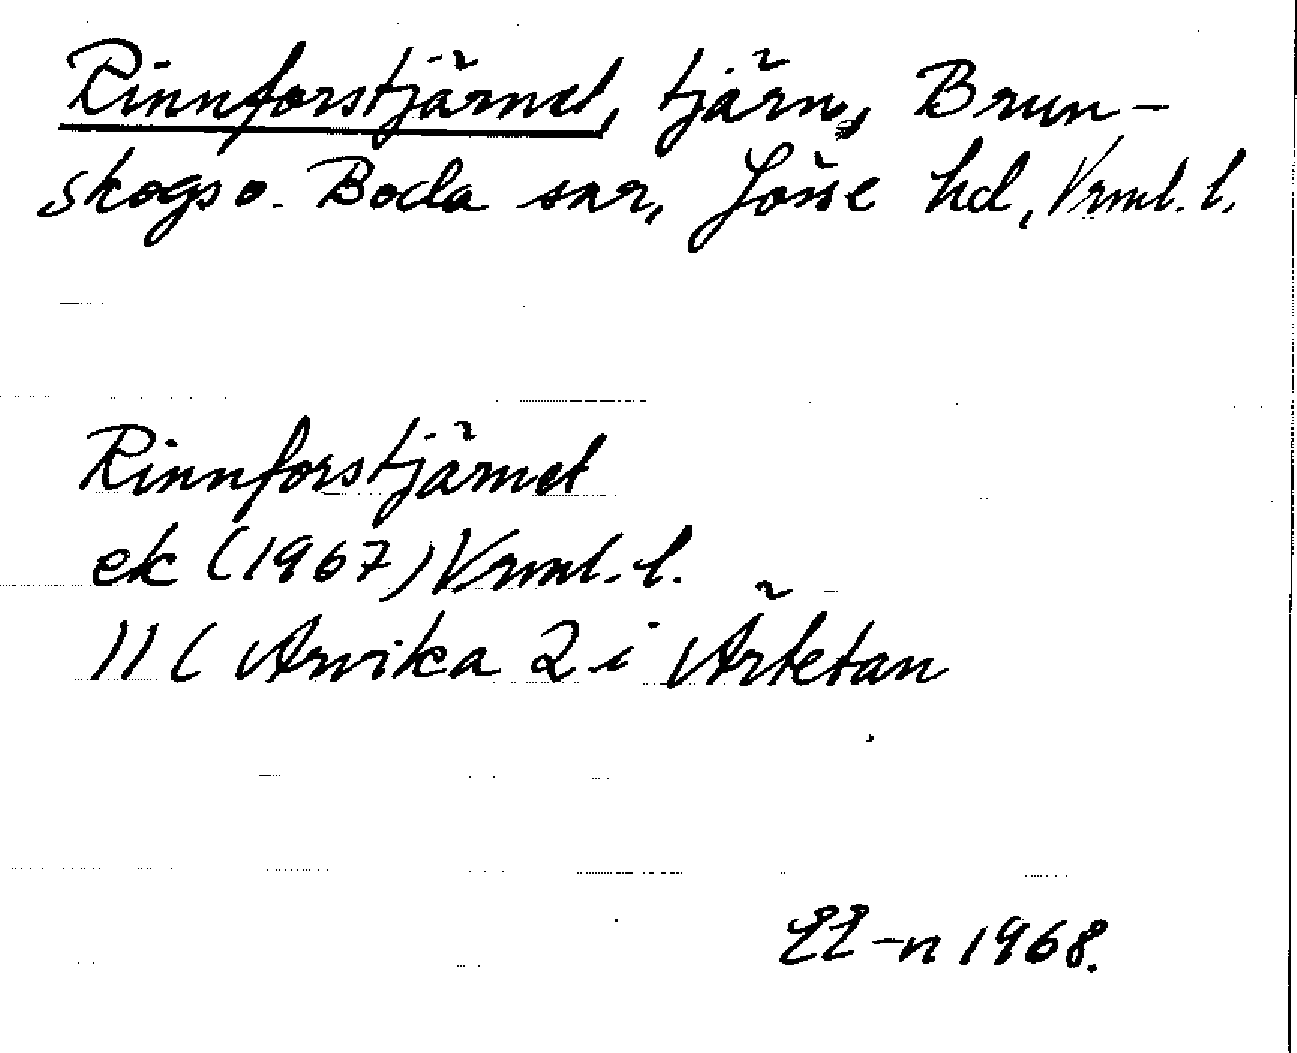 Rinnforstjärnet, tjärn, Brun-
skogs o. Boda snr, Jösse hd, Vrml. l.
Rinnforstjärnet
ek (1967) Vrml. l.
11 C Arvika 2 i Ärtetan
EE-n 1968.